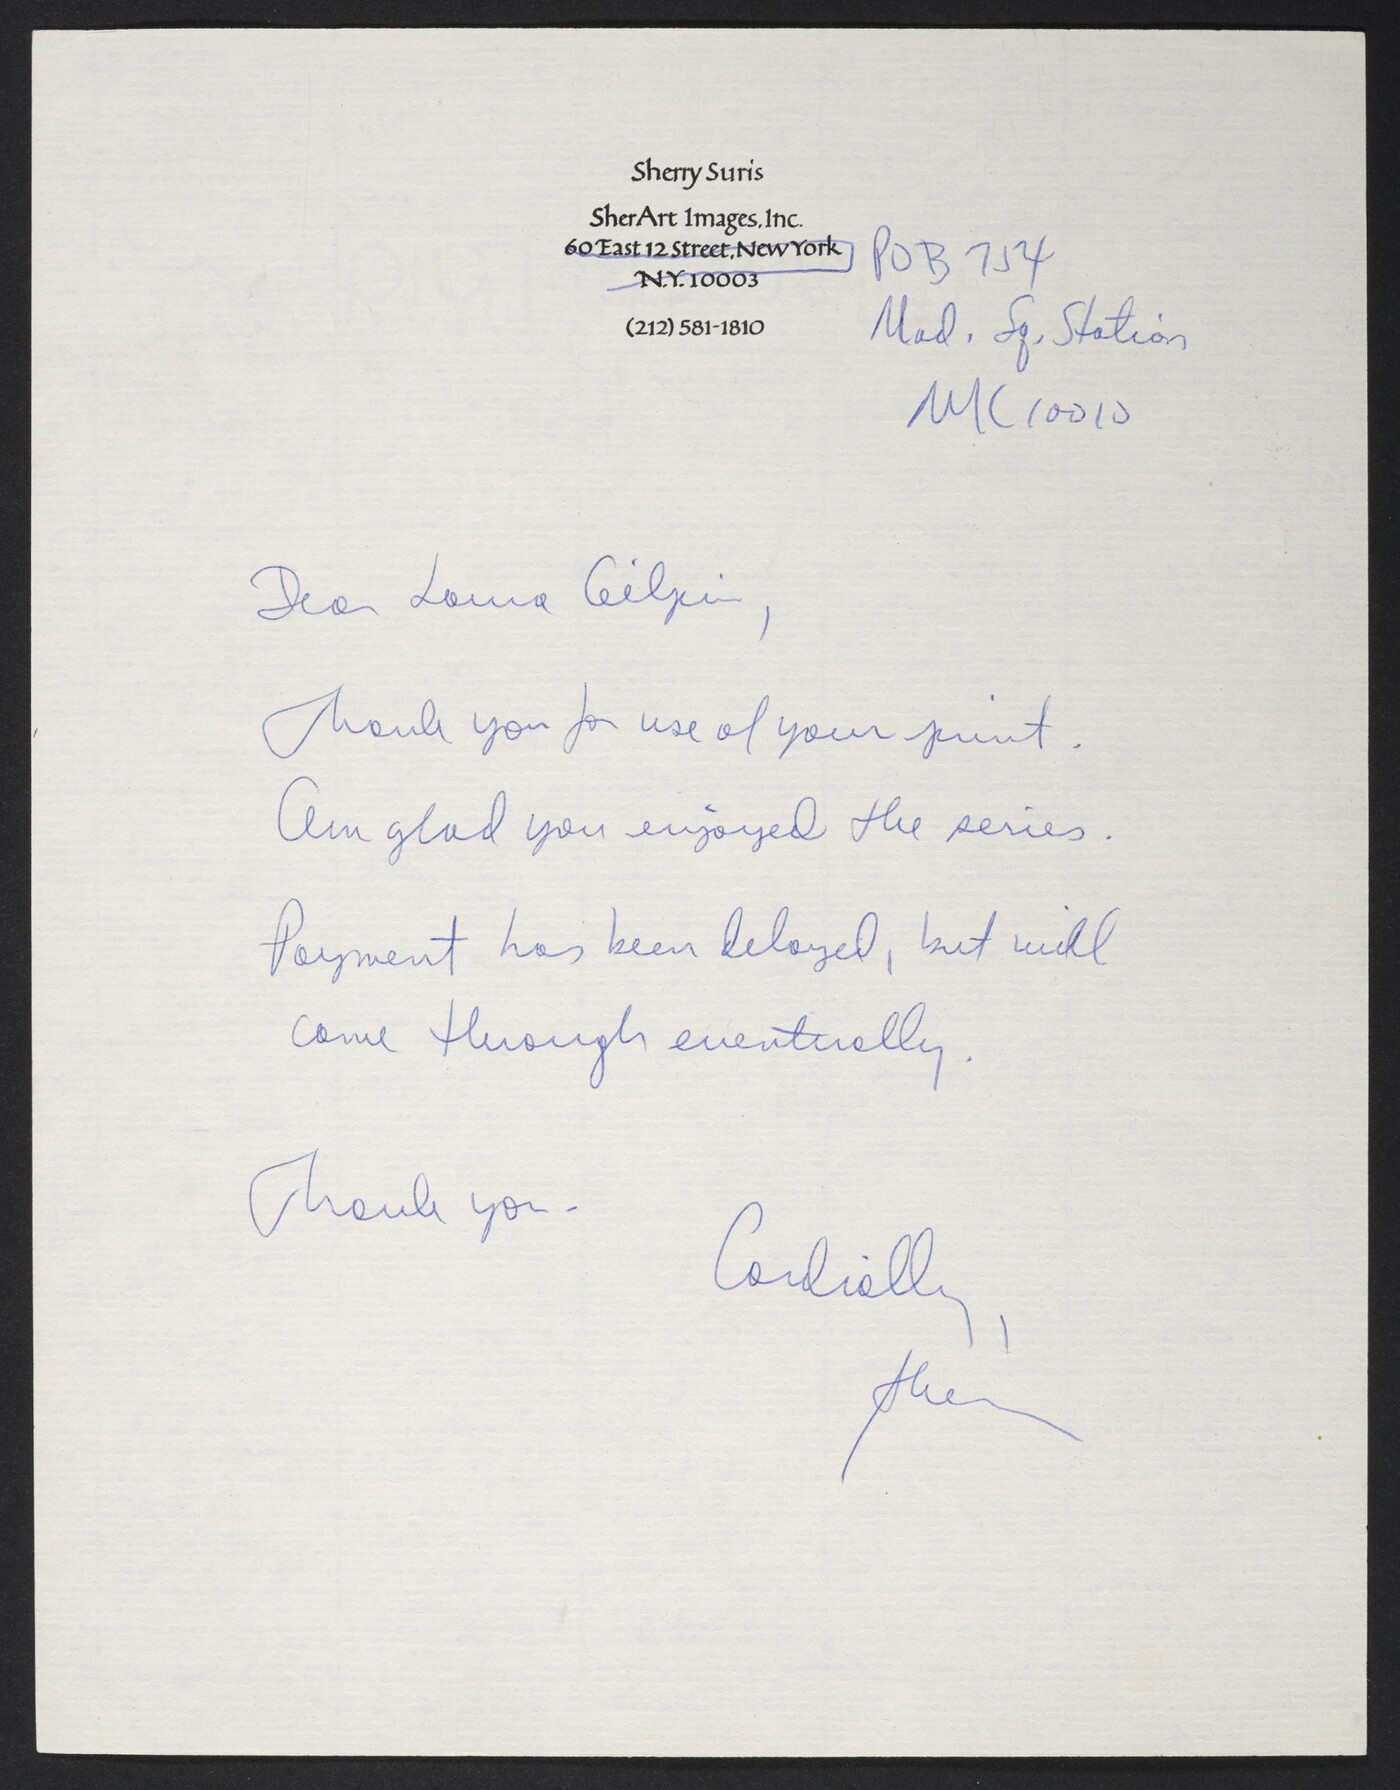 Sherry Suris
SherArt Images, Inc.
60 East 12 Street, New York
N.Y. 10003
(212) 581-1810
POB 754
Mad. Sq. Station
NYC 10010
Dear Laura Gilpin,
Thank you for use of your print.
Am glad you enjoyed the series.
Payment has been delayed, but will
come through eventually.
Thank you.
Cordially,
Sherry